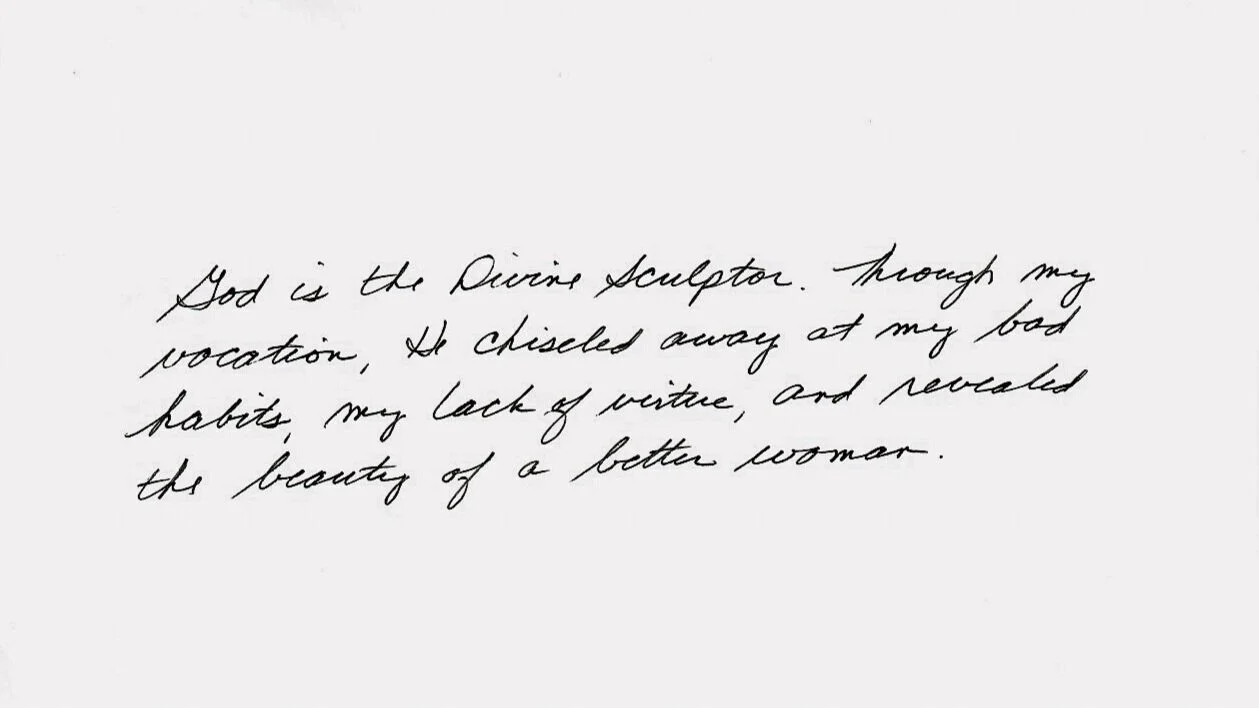 God is the Divine Sculptor. Through my
vocation, He chiseled away at my bad
habits, my lack of virtue, and revealed
the beauty of a better woman.